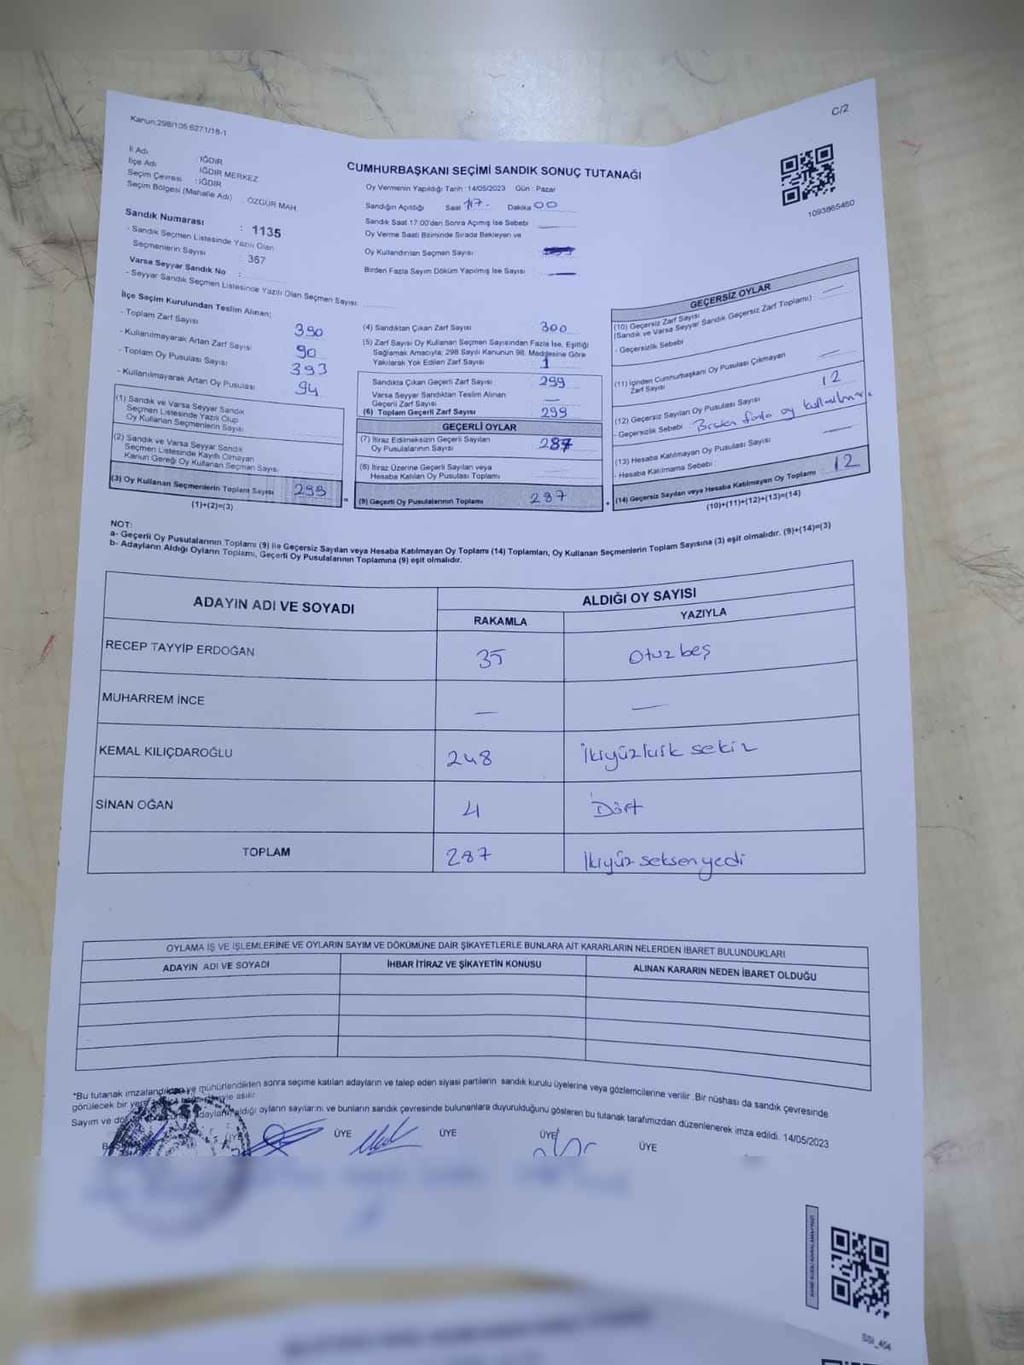 Kanun:298/105 6271/18-1
C/2
İl Adı : IĞDIR
İlçe Adı : IĞDIR MERKEZ
Seçim Çevresi : IĞDIR
Seçim Bölgesi (Mahalle Adı) : ÖZGÜR MAH.
CUMHURBAŞKANI SEÇİMİ SANDIK SONUÇ TUTANAĞI
Oy Vermenin Yapıldığı Tarih : 14/05/2023 Gün : Pazar
Sandığın Açıldığı Saat 17. Dakika 00
Sandık Saat 17:00'den Sonra Açımış İse Sebebi
Oy Verme Saati Bitiminde Sırada Bekleyen ve
Oy Kullandırılan Seçmen Sayısı
Birden Fazla Sayım Döküm Yapılmış İse Sayısı —
1093865460
Sandık Numarası : 1135
- Sandık Seçmen Listesinde Yazılı Olan
Seçmenlerin Sayısı : 367
Varsa Seyyar Sandık No :
- Seyyar Sandık Seçmen Listesinde Yazılı Olan Seçmen Sayısı
İlçe Seçim Kurulundan Teslim Alınan;
- Toplam Zarf Sayısı 390
- Kullanılmayarak Artan Zarf Sayısı 90
- Toplam Oy Pusulası Sayısı 393
- Kullanılmayarak Artan Oy Pusulası 94
(1) Sandık ve Varsa Seyyar Sandık
Seçmen Listesinde Yazılı Olup
Oy Kullanan Seçmenlerin Sayısı
(2) Sandık ve Varsa Seyyar Sandık
Seçmen Listesinde Kayıtlı Olmayan
Kanun Gereği Oy Kullanan Seçmen Sayısı
(3) Oy Kullanan Seçmenlerin Toplam Sayısı 299
(1)+(2)=(3)
(4) Sandıktan Çıkan Zarf Sayısı 300
(5) Zarf Sayısı Oy Kullanan Seçmen Sayısından Fazla İse, Eşitliği
Sağlamak Amacıyla; 298 Sayılı Kanunun 98. Maddesine Göre
Yakılarak Yok Edilen Zarf Sayısı 1
Sandıkta Çıkan Geçerli Zarf Sayısı 299
Varsa Seyyar Sandıktan Teslim Alınan
Geçerli Zarf Sayısı —
(6) Toplam Geçerli Zarf Sayısı 299
GEÇERLİ OYLAR
(7) İtiraz Edilmeksizin Geçerli Sayılan
Oy Pusulasının Sayısı 287
(8) İtiraz Üzerine Geçerli Sayılan veya
Hesaba Katılan Oy Pusulası Toplamı
(9) Geçerli Oy Pusulalarının Toplamı 287
GEÇERSİZ OYLAR
(10) Geçersiz Zarf Sayısı —
(Sandık ve Varsa Seyyar Sandık Geçersiz Zarf Toplamı)
- Geçersizlik Sebebi
(11) İçinden Cumhurbaşkanı Oy Pusulası Çıkmayan
Zarf Sayısı —
(12) Geçersiz Sayılan Oy Pusulası Sayısı 12
- Geçersizlik Sebebi Birden fazla oy
(13) Hesaba Katılmayan Oy Pusulası Sayısı —
- Hesaba Katılmama Sebebi :
(14) Geçersiz Sayılan veya Hesaba Katılmayan Oy Toplamı 12
(10)+(11)+(12)+(13)=(14)
NOT:
a- Geçerli Oy Pusulalarının Toplamı (9) ile Geçersiz Sayılan veya Hesaba Katılmayan Oy Toplamı (14) Toplamları, Oy Kullanan Seçmenlerin Toplam Sayısına (3) eşit olmalıdır. (9)+(14)=(3)
b- Adayların Aldığı Oyların Toplamı, Geçerli Oy Pusulalarının Toplamına (9) eşit olmalıdır.
ADAYIN ADI VE SOYADI ALDIĞI OY SAYISI
RAKAMLA YAZIYLA
RECEP TAYYİP ERDOĞAN 35 Otuz beş
MUHARREM İNCE — —
KEMAL KILIÇDAROĞLU 248 İkiyüzkırk sekiz
SİNAN OĞAN 4 Dört
TOPLAM 287 İkiyüz seksen yedi
OYLAMA İŞ VE İŞLEMLERİNE VE OYLARIN SAYIM VE DÖKÜMÜNE DAİR ŞİKAYETLERLE BUNLARA AİT KARARLARIN NELERDEN İBARET BULUNDUKLARI
ADAYIN ADI VE SOYADI İHBAR İTİRAZ VE ŞİKAYETİN KONUSU ALINAN KARARIN NEDEN İBARET OLDUĞU
*Bu tutanak imzalandıktan ve mühürlendikten sonra seçime katılan adayların ve talep eden siyasi partilerin sandık kurulu üyelerine veya gözlemcilerine verilir. Bir nüshası da sandık çevresinde
görülecek bir yere asılır
Sayım ve aldığı oyların sayılarını ve bunların sandık çevresinde bulunanlara duyurulduğunu gösteren bu tutanak tarafımızdan düzenlenerek imza edildi. 14/05/2023
ÜYE ÜYE ÜYE ÜYE ÜYE